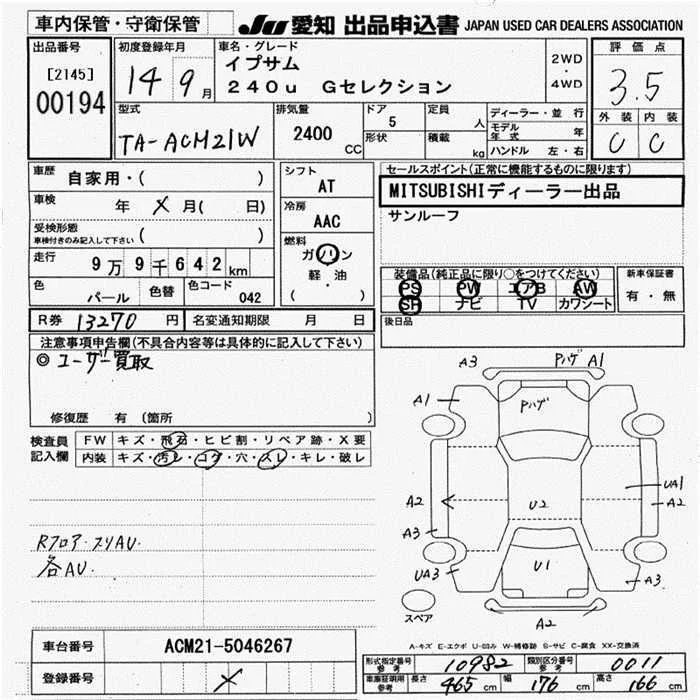 車内保管・守衛保管 JU 愛知 出品申込書 JAPAN USED CAR DEALERS ASSOCIATION
出品番号 初度登録年月 車名・グレード 評価点
[2145] 00194 14 9月 イプサム 240u Gセレクション 2WD・4WD 3.5
型式 排気量 ドア 定員 ディーラー・並行 外装 内装
TA-ACM21W 2400 CC 5 人 モデル年式 C C
形状 積載 kg ハンドル 左・右
車歴 自家用・( ) シフト AT セールスポイント(正常に機能するものに限ります)
車検 年 メ 月( 日) 冷房 AAC MITSUBISHIディーラー出品
受検形態 車検付きのみ記入して下さい ( ) サンルーフ
走行 9万9千642km 燃料 ガソリン 軽・油 ( ・ )
装備品(純正品に限り○をつけてください) 新車保証書
PS PW エアB AW 有・無
SR ナビ TV カワシート
色 パール 色替 色コード 042
R券 13270 円 名変通知期限 月 日 後日品
注意事項申告欄(不具合内容等は具体的に記入して下さい)
◎ユーザー買取
修復歴 有 (箇所 )
検査員記入欄 FW キズ・飛石・ヒビ割・リペア跡・X要
内装 キズ・汚レ・コゲ・穴・スレ・キレ・破レ
Rフロア・スリAU.
各AU.
A3 Pハゲ A1
A1 Pハゲ
UA1
A2 U2 A2
A3
UA3 U1 A3
スペア A2
A-キズ E-エクボ U-凹み W-補修跡 S-サビ C-腐食 XX-交換済
車台番号 ACM21-5046267
登録番号 メ
形式指定番号 参考 10982 類別区分番号 参考 0011
車庫証明用 参考 長さ 465 cm 幅 176 cm 高さ 166 cm